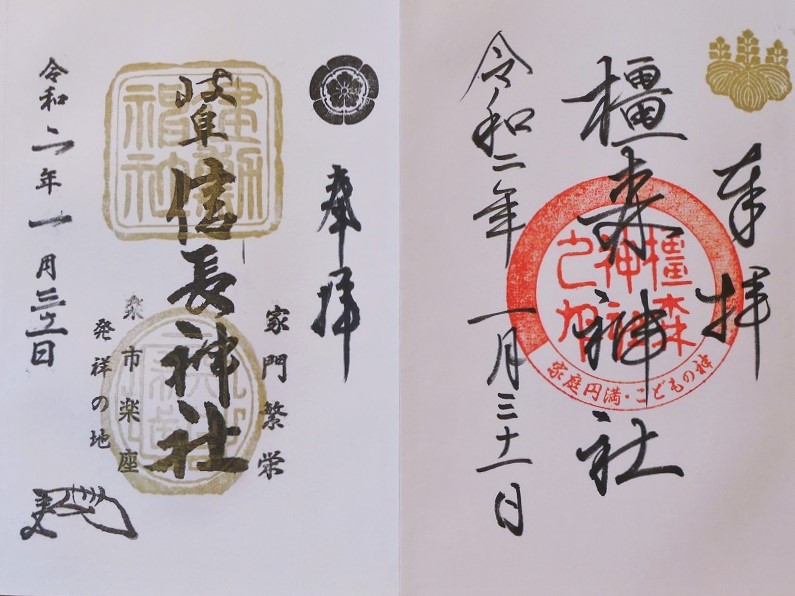 奉拝
家門繁栄
岐阜信長神社
建勲
神社
楽市楽座
発祥の地
令和二年一月三十一日
奉拝
橿森神社
橿森
神社
之印
家庭円満・こどもの神
令和二年一月三十一日